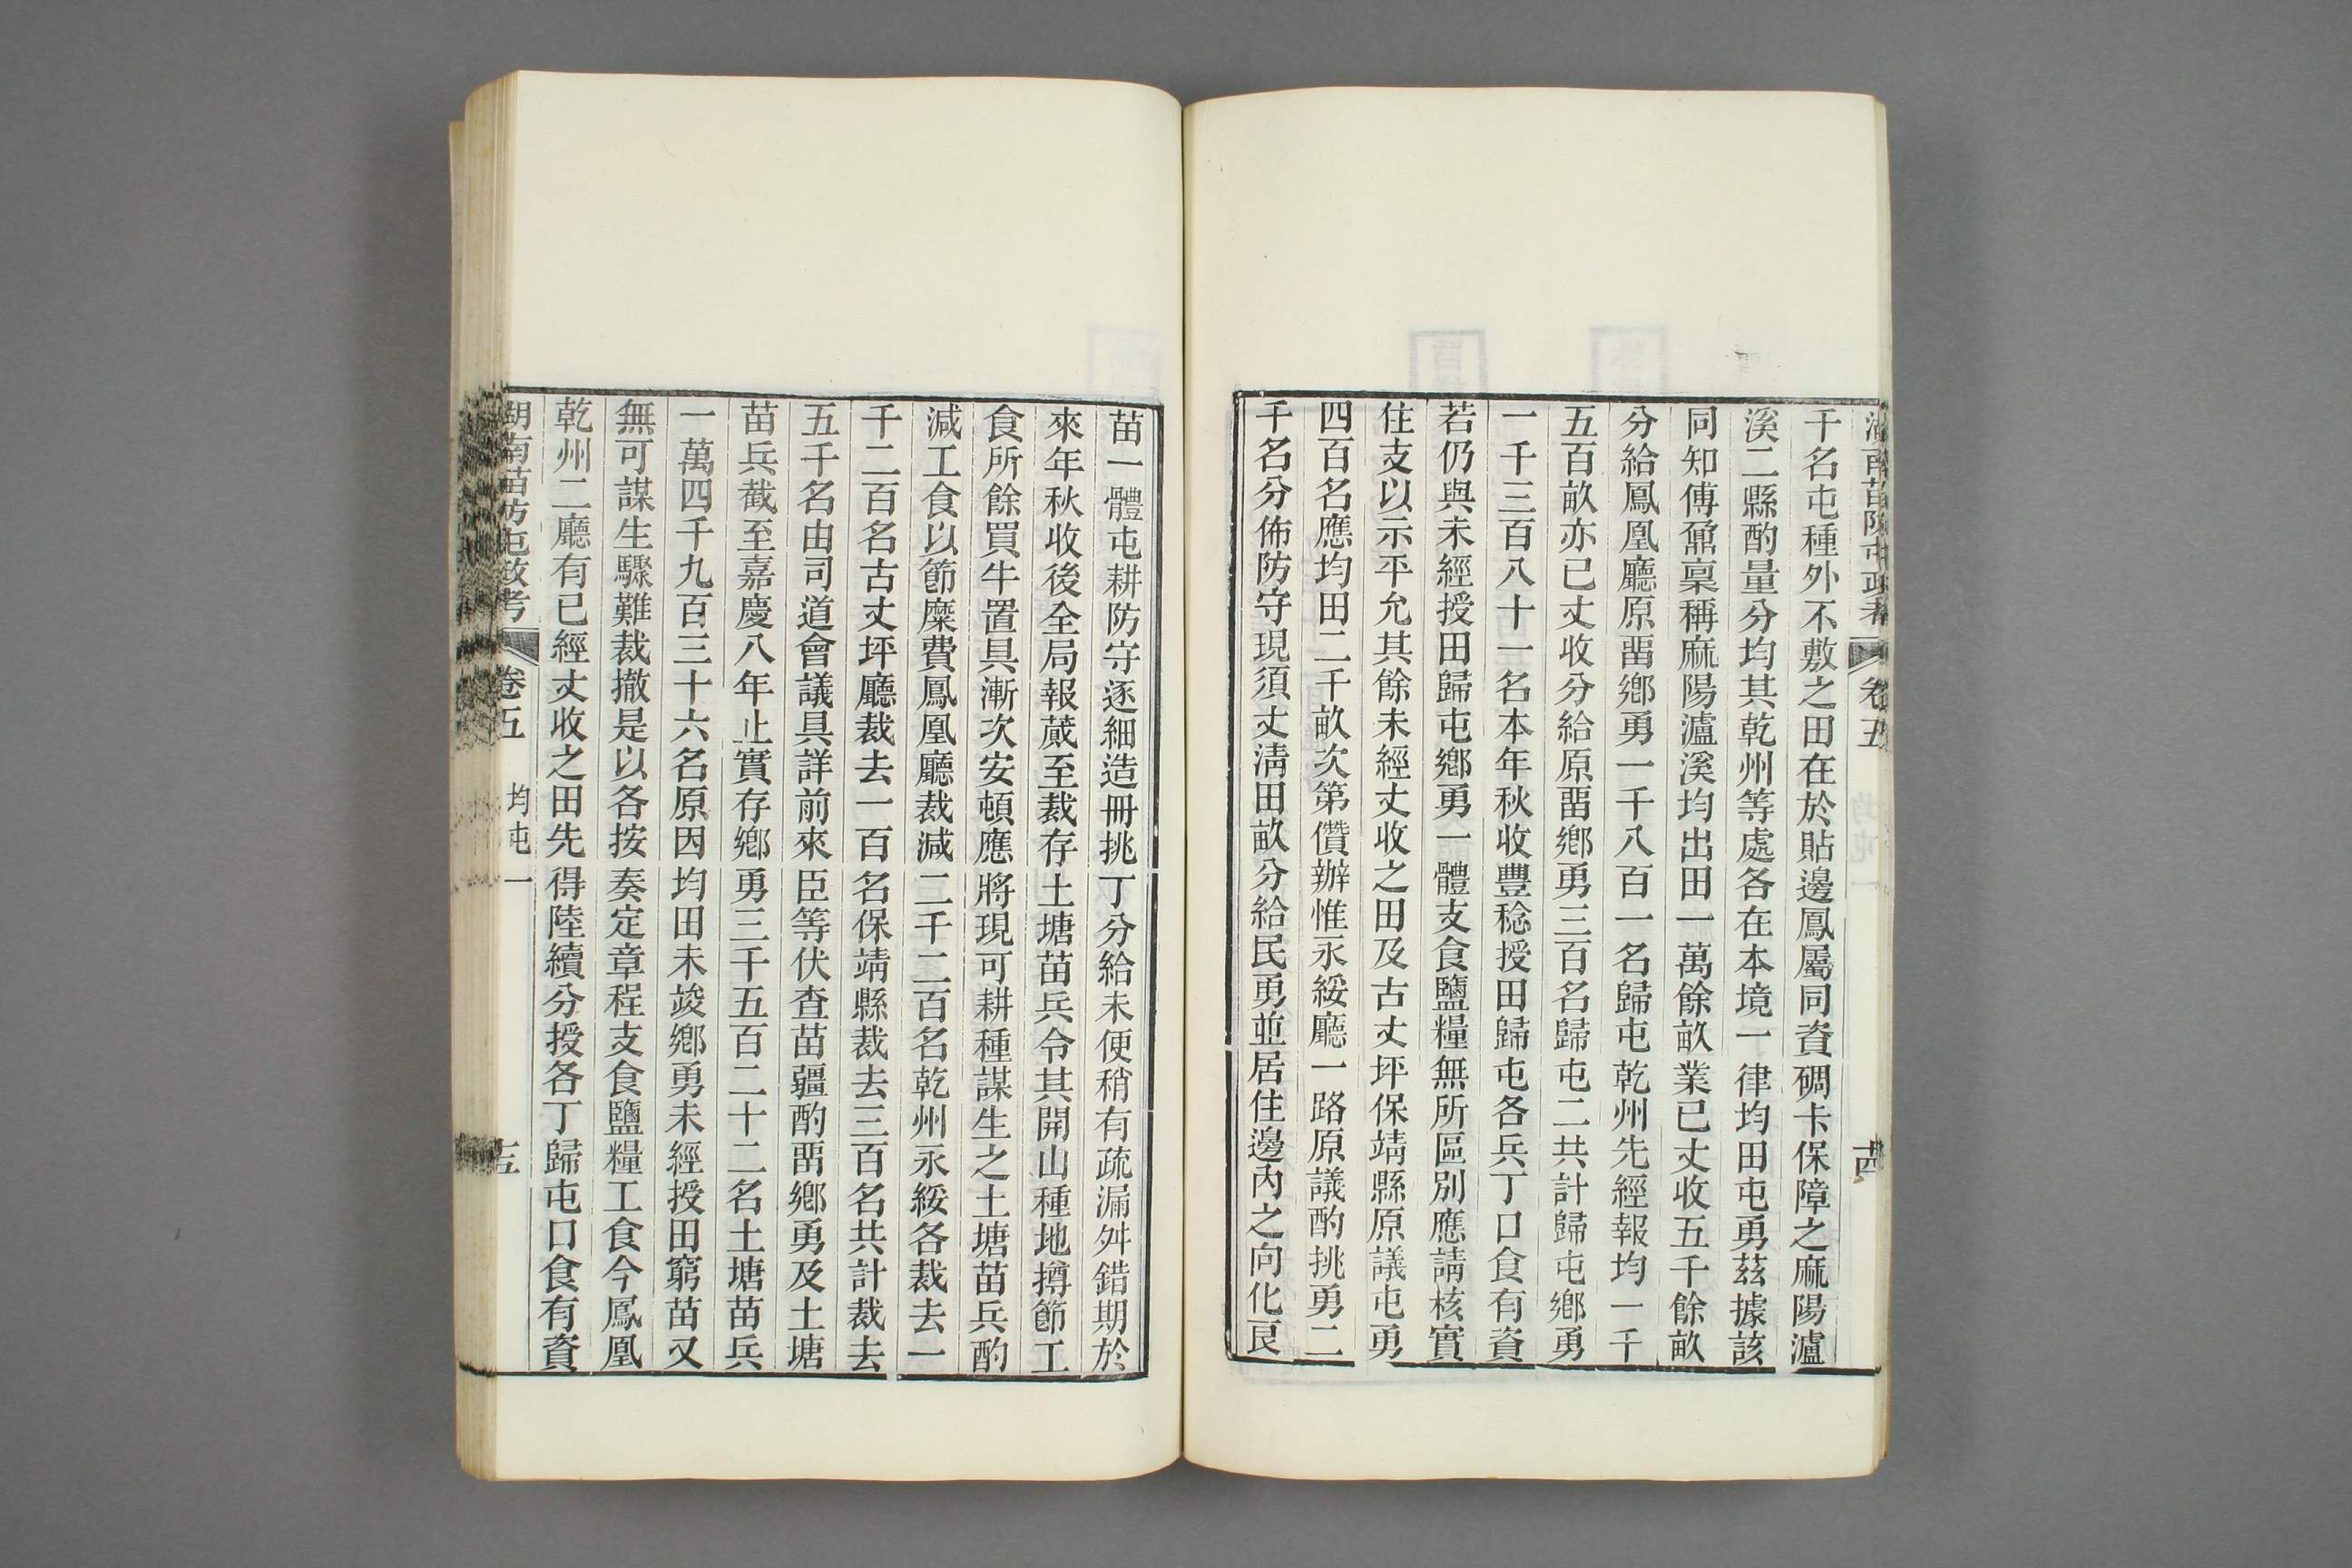 湖南苗防屯政考 卷五 十四
千名屯種外不敷之田在於貼邊鳳屬同資碉卡保障之麻陽瀘
溪二縣酌量分均其乾州等處各在本境一律均田屯勇茲據該
同知傅鼐稟稱麻陽瀘溪均出田一萬餘畝業已丈收五千餘畝
分給鳳凰廳原畱鄉勇一千八百一名歸屯乾州先經報均一千
五百畝亦已丈收分給原畱鄉勇三百名歸屯二共計歸屯鄉勇
一千三百八十一名本年秋收豐稔授田歸屯各兵丁口食有資
若仍與未經授田歸屯鄉勇一體支食鹽糧無所區別應請核實
住支以示平允其餘未經丈收之田及古丈坪保靖縣原議屯勇
四百名應均田二千畝次第儧辦惟永綏廳一路原議酌挑勇二
千名分佈防守現須丈淸田畝分給民勇並居住邊內之向化良
苗一體屯耕防守逐細造冊挑丁分給未便稍有疏漏舛錯期於
來年秋收後全局報蕆至裁存土塘苗兵令其開山種地撙節工
食所餘買牛置具漸次安頓應將現可耕種謀生之土塘苗兵酌
減工食以節糜費鳳凰廳裁減二千二百名乾州永綏各裁去一
千二百名古丈坪廳裁去一百名保靖縣裁去三百名共計裁去
五千名由司道會議具詳前來臣等伏查苗疆酌畱鄉勇及土塘
苗兵截至嘉慶八年止實存鄉勇三千五百二十二名土塘苗兵
一萬四千九百三十六名原因均田未竣鄉勇未經授田窮苗又
無可謀生驟難裁撤是以各按奏定章程支食鹽糧工食今鳳凰
乾州二廳有已經丈收之田先得陸續分授各丁歸屯口食有資
湖南苗防屯政考 卷五 均屯一 十五